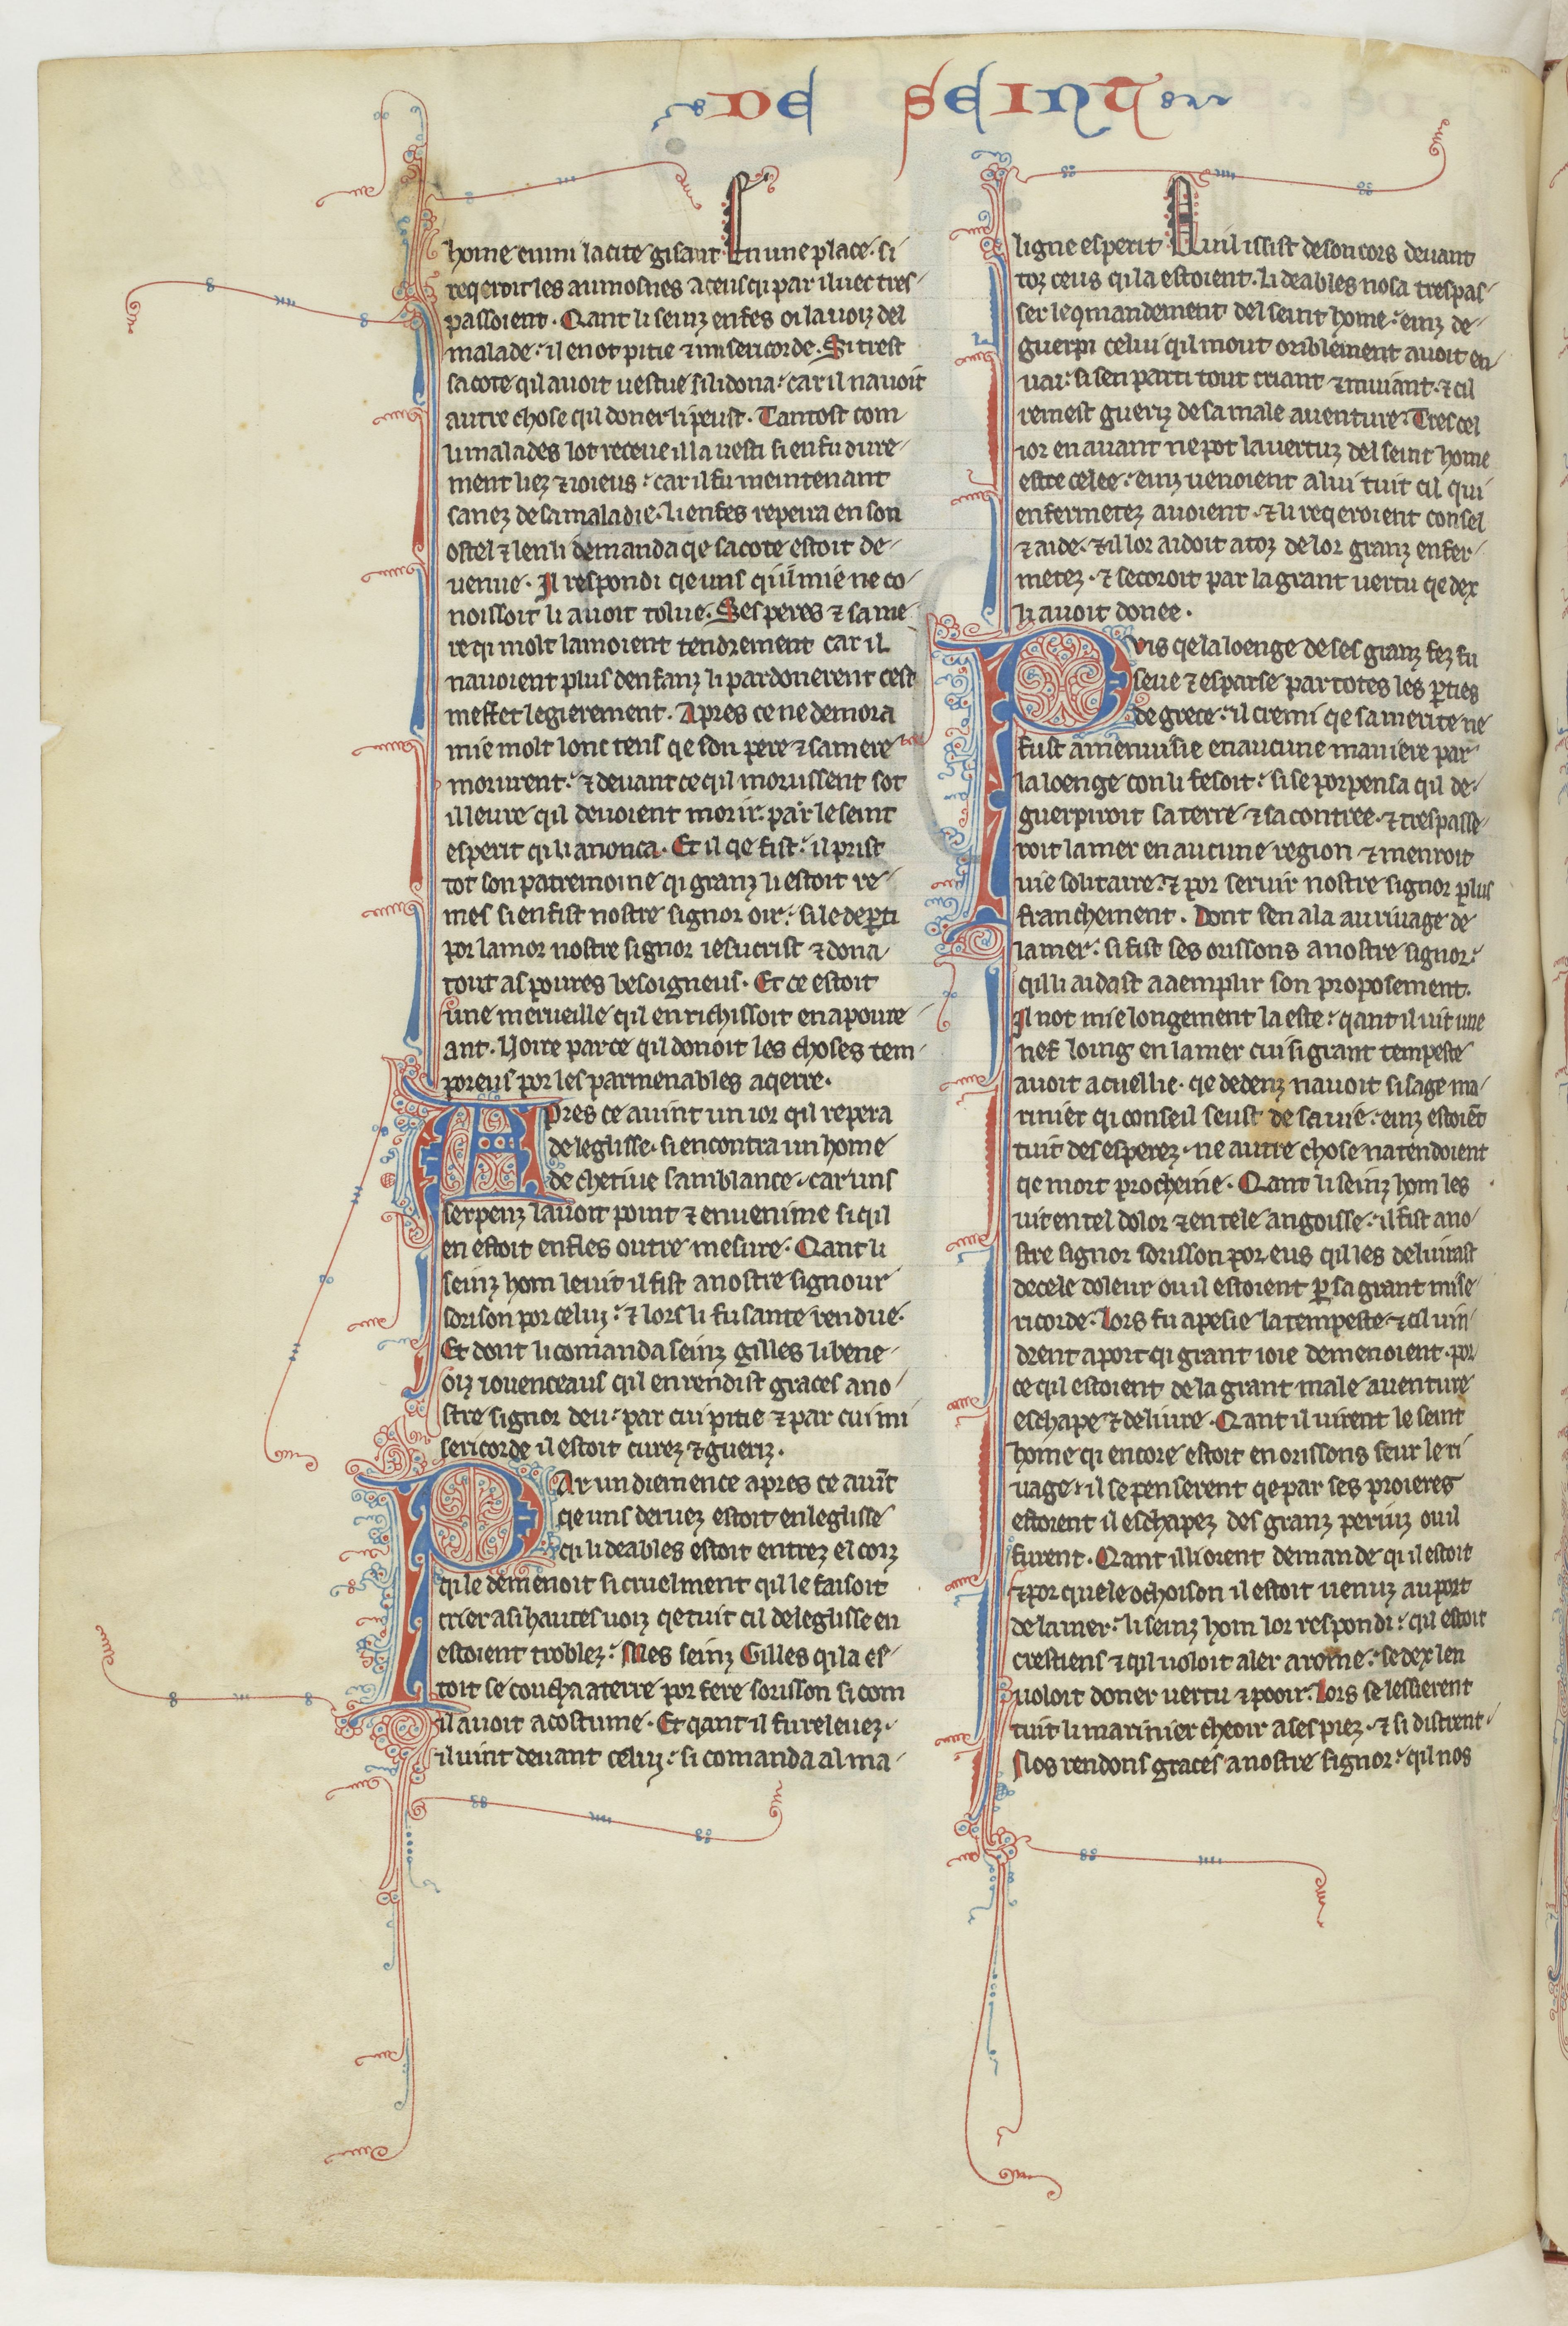 DE SEINT
home enmi la cite gisant En une place. si
reqeroit les aumosnes a ceus qi par iluec tres-
passoient. Qant li seinz enfes oi la uoiz del
malade. il en ot pitie ⁊ misericorde. Si trest
sa cote qil auoit uestue si li dona. car il nauoit
autre chose qil doner li peust. Tantost com
li malades lot receue il la uesti si en fu dure-
ment liez ⁊ ioieus. car il fu meintenant
sanez de sa maladie. li enfes repeira en son
ostel ⁊ len li demanda qe sa cote estoit de-
uenue. Il respondi qe uns qil mie ne co-
noissoit li auoit tolue. Ses peres ⁊ sa me-
re qi molt lamoient tendrement car il
nauoient plus denfanz li pardonerent cest
meffet legierement. Apres ce ne demora
mie molt lonc tens qe son pere ⁊ sa mere
morurent. ⁊ deuant ce qil morussent sot
il leure qil deuoient morir. par le seint
esperit qi li anonca. Et il qe fist. il prist
tot son patremoine qi granz li estoit re-
mes si en fist nostre signor oir. si le departi
por lamor nostre signor iesucrist ⁊ dona
tout as poures besoigneus. Et ce estoit
une merueille qil enrichissoit en apoure-
ant. Uoire par ce qil donoit les choses tem-
poreus por les parmenables aqerre.
Apres ce auint un ior qil repera
de leglisse. si encontra un home
de chetiue samblance. car uns
serpenz lauoit point ⁊ enuenime si qil
en estoit enfles outre mesure. Qant li
seinz hom le uit il fist a nostre signour
sorison por celui. ⁊ lors li fu sante rendue.
Et dont li comanda seinz gilles li bene-
oiz iouenceaus qil en rendist graces a no-
stre signor deu. par cui pitie ⁊ par cui mi
sericorde il estoit curez ⁊ gueriz.
Par un diemence apres ce auint
qe uns deruez estoit en leglisse
qi li deables estoit entrez el cors
qi le demenoit si cruelment qil le faisoit
crier a si hautes uoiz qe tuit cil de leglisse en
estoient troblez. Mes seinz Gilles qi la es-
toit se coucha a terre por fere sorisson si com
il auoit acostume. Et qant il fu releuez.
il uint deuant celui. si comanda al ma-
ligne esperit Quil issist de son cors deuant
toz ceus qi la estoient. li deables nosa trespas-
ser le qmandement del seint home. einz de-
guerpi celui qil mout oriblement auoit en-
uai. si sen parti tout criant ⁊ muiant. ⁊ cil
remest gueriz de sa male auenture. Tres cel
ior en auant ne pot la uertuz del seint home
estre celee. einz uenoient a lui tuit cil qui
enfermetez auoient. ⁊ li reqeroient consel
⁊ aide. ⁊ il lor aidoit a toz de lor granz enfer-
metez. ⁊ secoroit par la grant uertu qe dex
li auoit donee.
Puis qe la loenge de ses granz fez fu
seue ⁊ esparse par totes les parties
de grece. il cremi qe sa merite ne
fust amenuisie en aucune maniere par
la loenge con li fesoit. si se porpensa qil de-
guerpiroit sa terre ⁊ sa contree. ⁊ trespasse-
roit la mer en aucune region ⁊ menroit
uie solitaire. ⁊ por seruir nostre signor plus
franchement. Dont sen ala au riuage de
la mer. si fist ses orissons a nostre signor.
qil li aidast a aemplir son proposement.
Il not mie longement la este. qant il uit une
nef loing en la mer cui si grant tempeste
auoit acuellie. qe dedenz nauoit si sage ma-
rinier qi conseil seust de sa uie. einz estoient
tuit desesperez. ne autre chose natendoient
qe mort procheine. Qant li seinz hom les
uit en tel dolor ⁊ en tele angoisse. il fist a no-
stre signor sorisson por eus qil les deliurast
de cele doleur ou il estoient par sa grant mise-
ricorde. Lors fu apesie la tempeste ⁊ cil uin-
drent a port qi grant ioie demenoient. por
ce qil estoient de la grant male auenture
eschape ⁊ deliure. Qant il uirent le seint
home qi encore estoit en orissons seur le ri
uage. il se penserent qe par ses proieres
estoient il eschapez des granz periuz ou il
furent. Qant il li orent demande qi il estoit
⁊ por quele ochoison il estoit uenuz au port
de la mer. li seinz hom lor respondi. qil estoit
crestiens ⁊ qil uoloit aler a rome. se dex len
uoloit doner uertu ⁊ pooir. Lors se lessierent
tuit li marinier cheoir a ses piez. ⁊ si distrent.
Nos rendons graces a nostre signor. qil nos